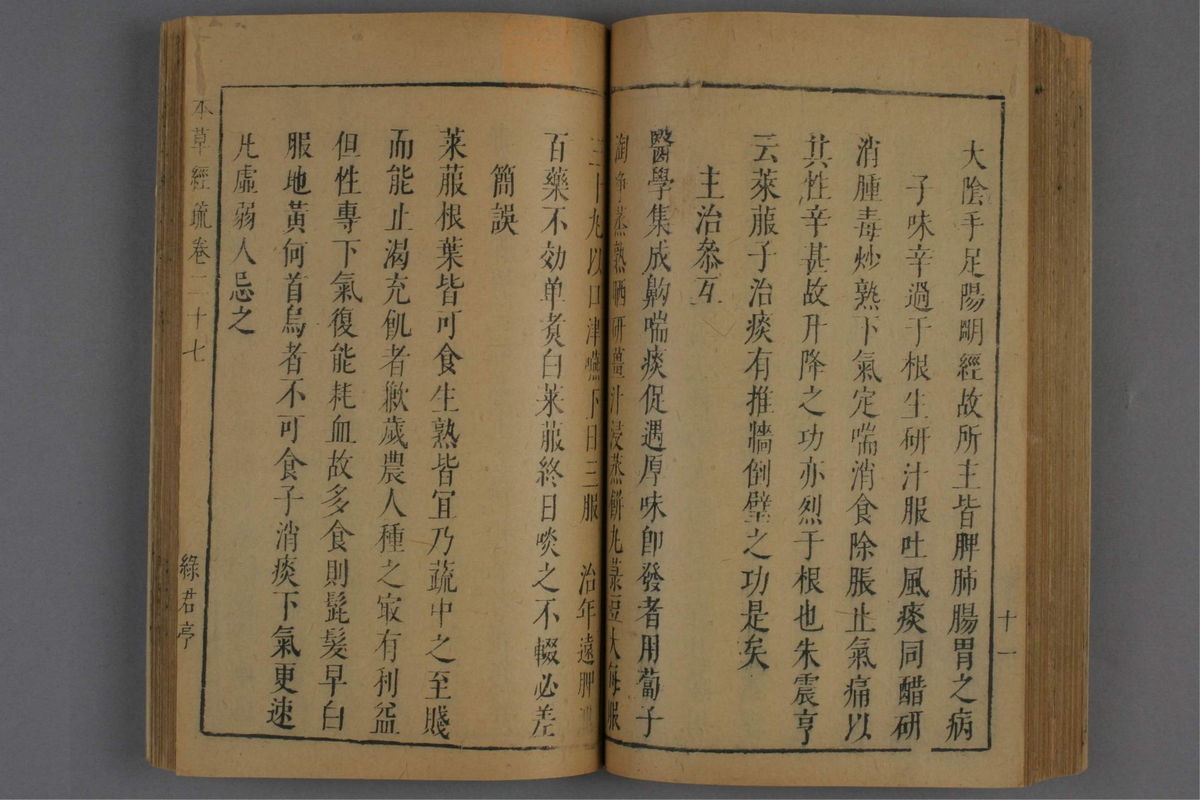 十一
大陰手足陽明經故所主皆脾肺腸胃之病
子味辛過于根生研汁服吐風痰同醋研
消腫毒炒熟下氣定喘消食除脹止氣痛以
其性辛甚故升降之功亦烈于根也朱震亨
云萊菔子治痰有推牆倒壁之功是矣
主治叅互
醫學集成齁喘痰促遇厚味卽發者用蔔子
淘淨蒸熟晒研薑汁浸蒸餅丸菉豆大每服
三十丸以口津嚥下日三服 治年遠脾
百藥不効单煑白萊菔終日啖之不輟必差
簡誤
萊菔根葉皆可食生熟皆宜乃蔬中之至賤
而能止渴充飢者歉歲農人種之㝡有利益
但性專下氣復能耗血故多食則髭髮早白
服地黃何首烏者不可食子消痰下氣更速
凡虛弱人忌之
本草經疏卷二十七
綠君亭